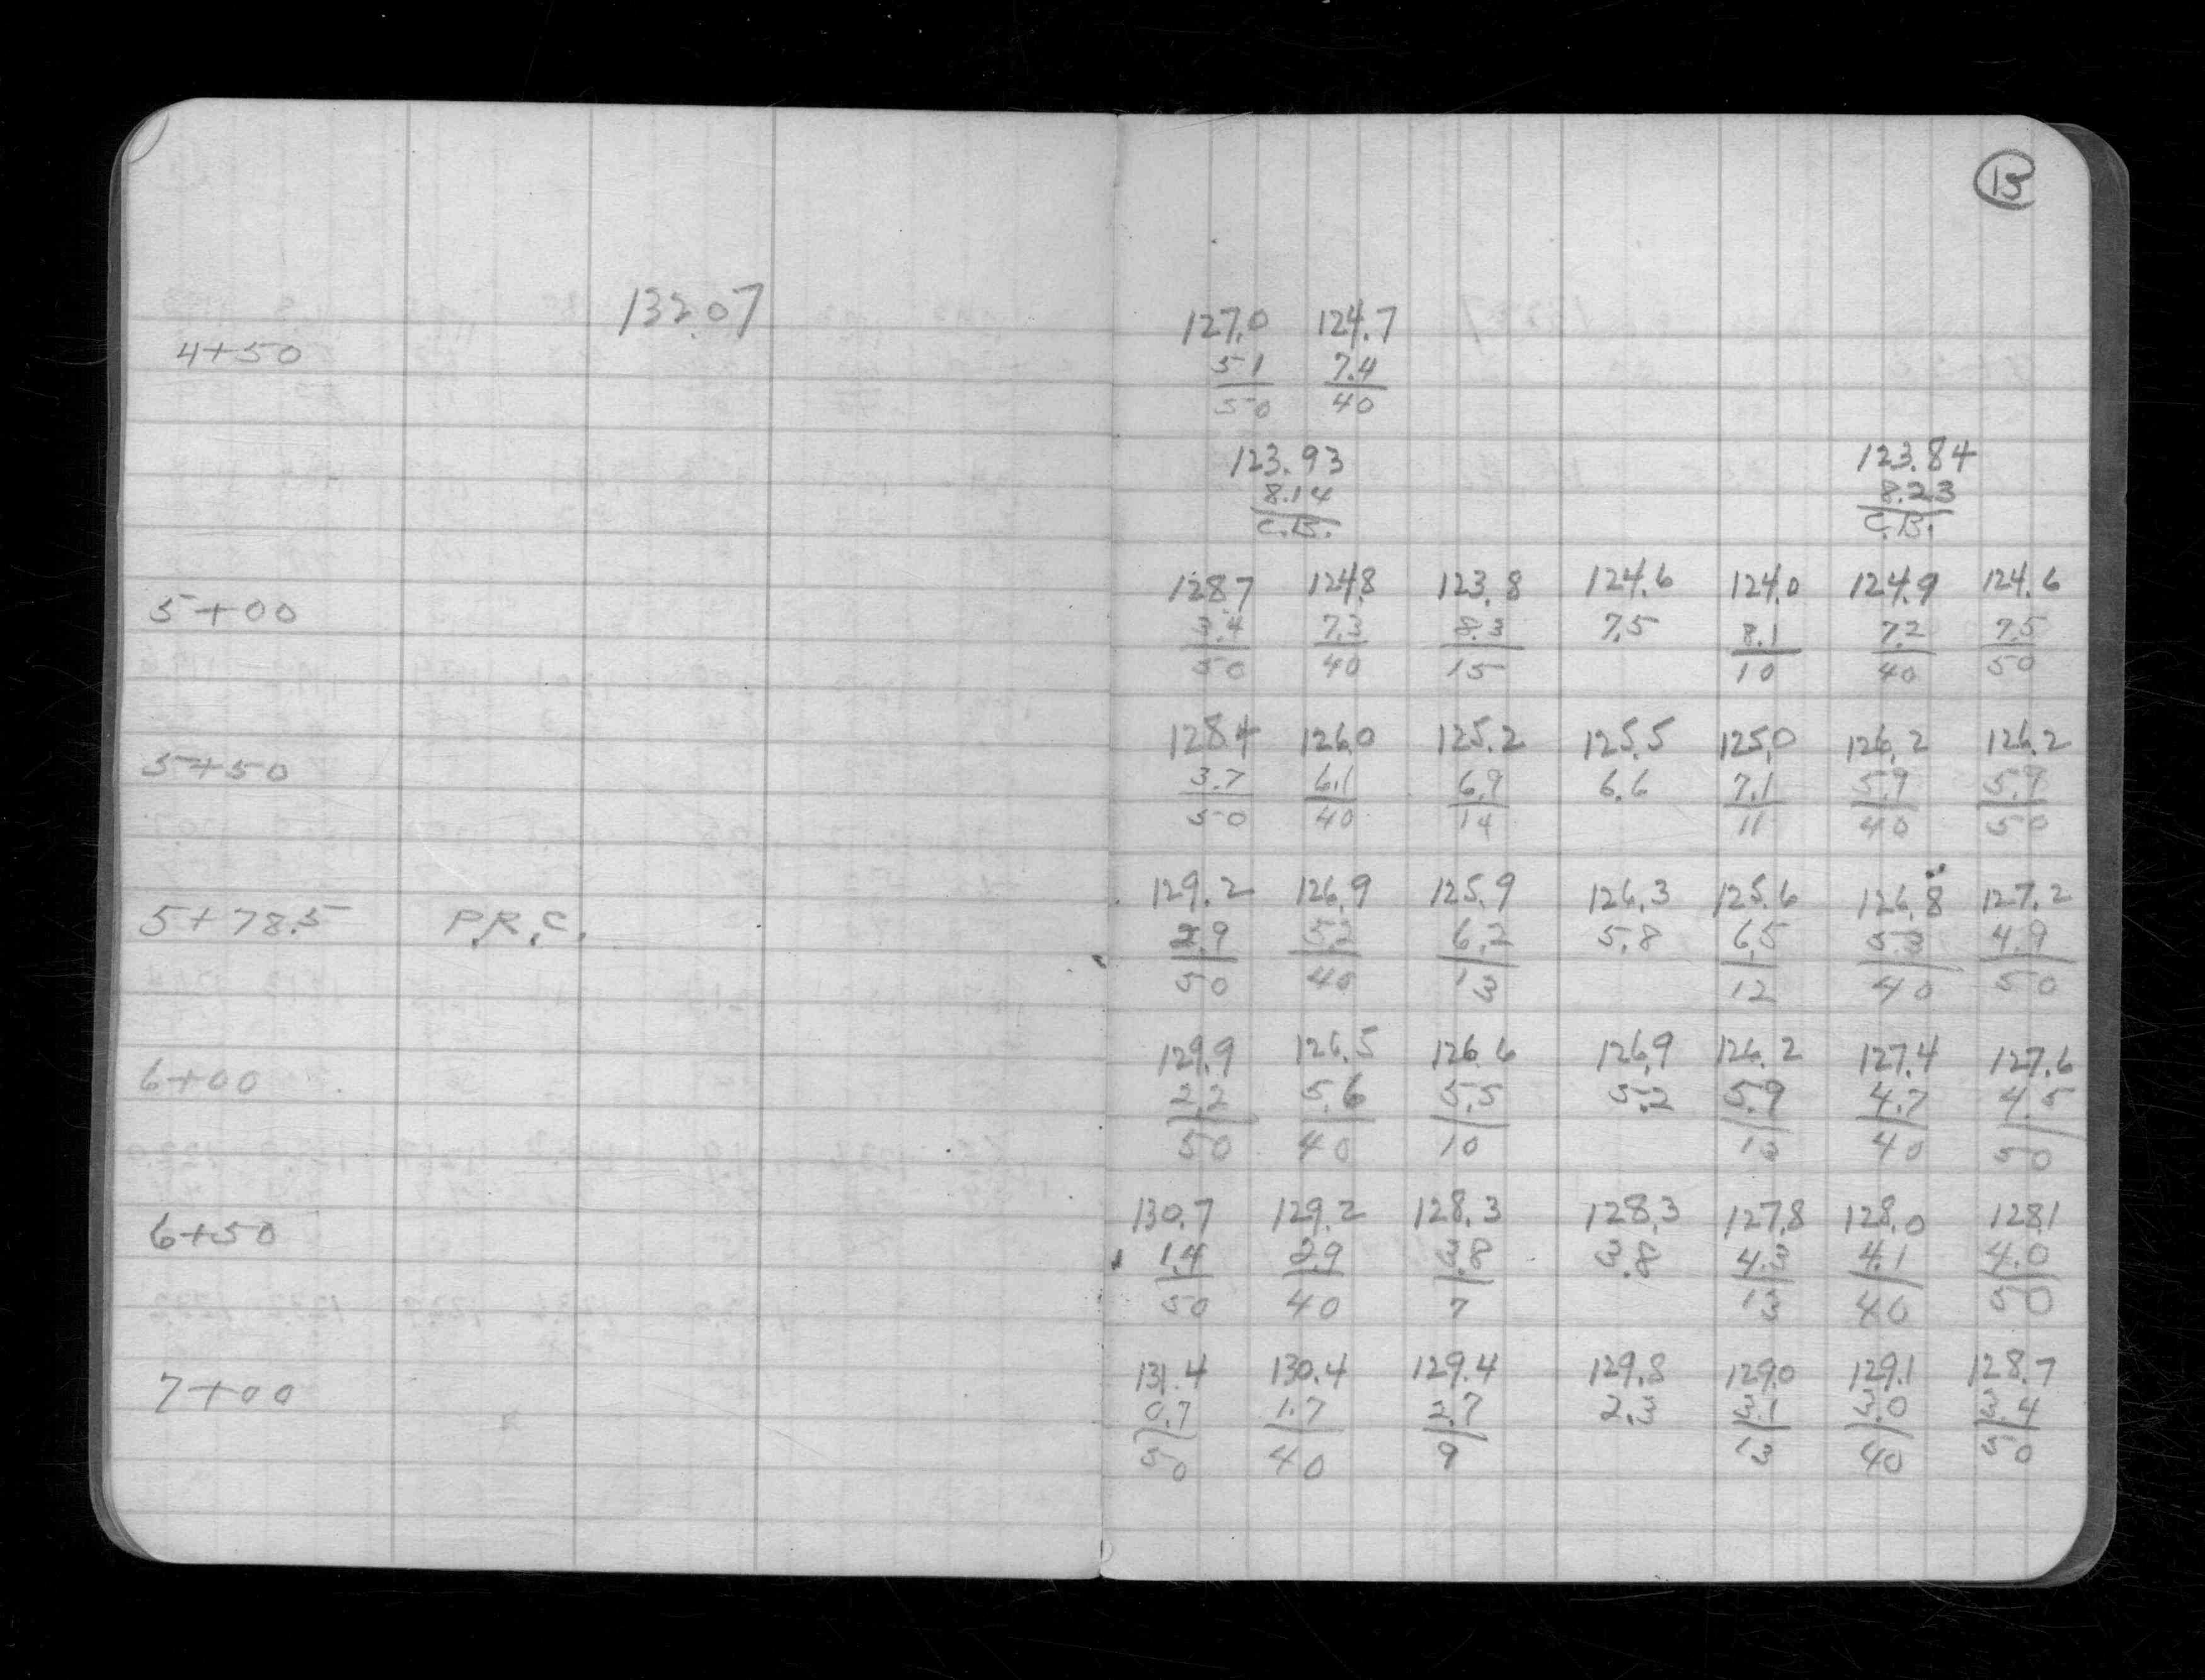 13
132.07
127.0 124.7
4+50 5 1 7.4
50 40
123.93 123.84
8.14 8.23
C.B. C.B.
128.7 124.8 123.8 124.6 124.0 124.9 124.6
5+00 3.4 7.3 8.3 7.5 8.1 7.2 7.5
50 40 15 10 40 50
128.4 126.0 125.2 125.5 125.0 126.2 126.2
5+50 3.7 6.1 6.9 6.6 7.1 5.9 5.9
50 40 14 11 40 50
129.2 126.9 125.9 126.3 125.6 126.8 127.2
5+78.5 P.R.C. 2.9 5.2 6.2 5.8 6.5 5.3 4.9
50 40 13 12 40 50
129.9 126.5 126.6 126.9 126.2 127.4 127.6
6+00 2.2 5.6 5.5 5.2 5.9 4.7 4.5
50 40 10 13 40 50
130.7 129.2 128.3 128.3 127.8 128.0 128.1
6+50 1.4 2.9 3.8 3.8 4.3 4.1 4.0
50 40 7 13 40 50
131.4 130.4 129.4 129.8 129.0 129.1 128.7
7+00 0.7 1.7 2.7 2.3 3.1 3.0 3.4
50 40 9 13 40 50